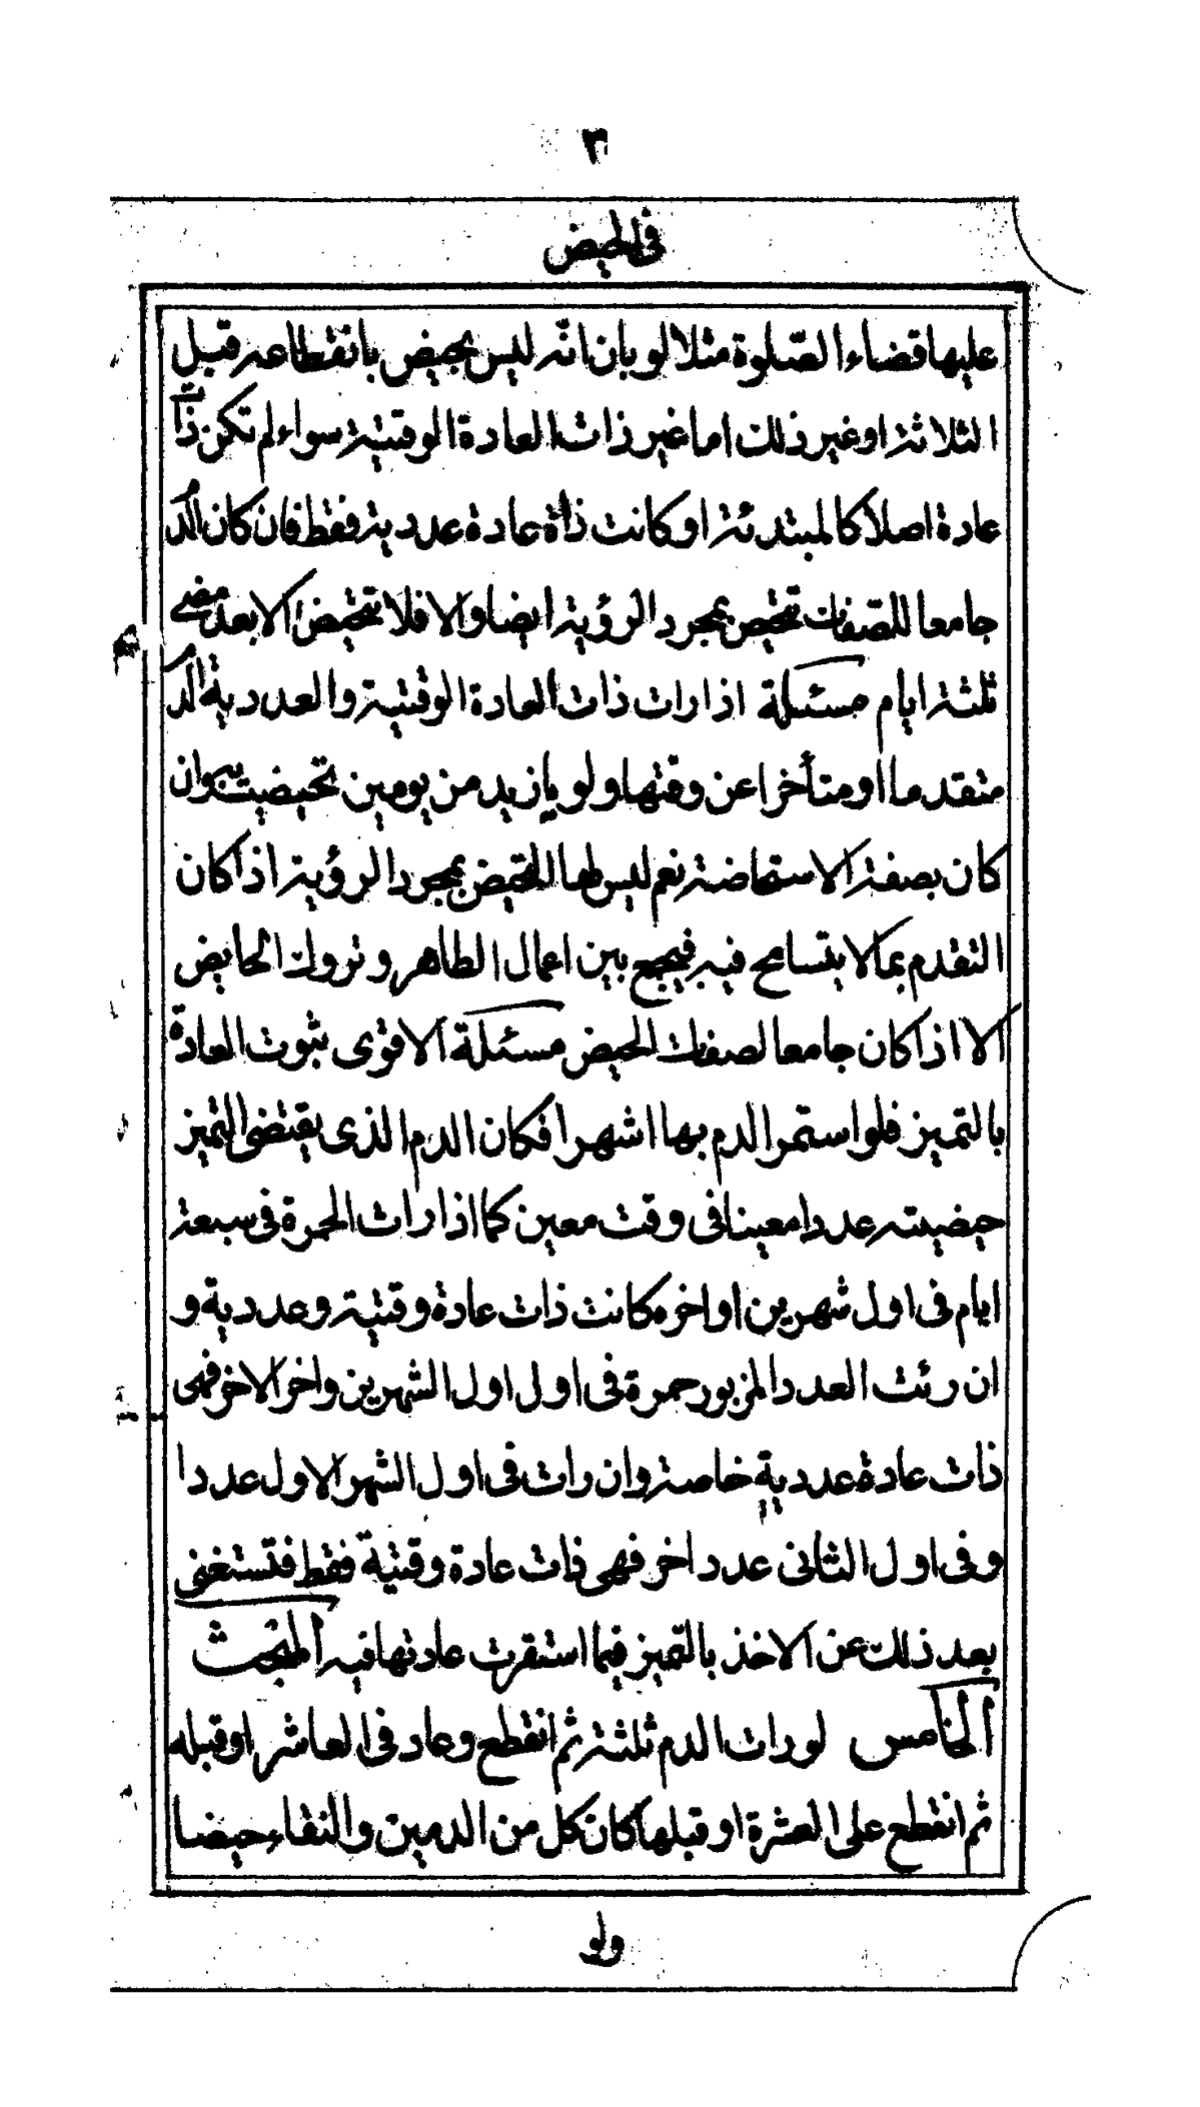 ٣
فى الحيض
عليها قضاء الصّلوة مثلا لو بان انّه ليس بحيض بانقطاعه قبل
الثلاثة او غير ذلك اما غير ذات العادة الوقتية سواء لم تكن ذات
عادة اصلا كالمبتدئة او كانت ذاة عادة عددية فقط فان كان الدم
جامعا للصّفات تحيض بمجرد الرؤية ايضا والا فلا تحيض الا بعد مضى
ثلثة ايام مسئلة اذا رات ذات العادة الوقتية والعددية الدم
متقدما او متأخرا عن وقتها ولو بازيد من يومين تحيضت به وان
كان بصفة الاستحاضة نعم ليس لها التحيض بمجرد الرؤية اذا كان
التقدم بما لا يتسامح فيه فيجمع بين اعمال الطاهر وتروك الحايض
الا اذا كان جامعا لصفات الحيض مسئلة الاقوى ثبوت العادة
بالتميز فلو استمر الدم بها اشهرا فكان الدم الذى يقتضى التميز
حيضيته عددا معينا فى وقت معين كما اذا رات الحمرة فى سبعة
ايام فى اول شهرين او اخره كانت ذات عادة وقتية وعددية و
ان رئت العدد المزبور حمرة فى اول اول الشهرين واخر الاخر فهى
ذات عادة عددية خاصة وان رات فى اول الشهر الاول عددا
وفى اول الثانى عددا خر فهى ذات عادة وقتية فقط فتستغنى
بعد ذلك عن الاخذ بالتميز فيما استقرت عادتها فيه المبحث
الخامس لو رات الدم ثلثة ثم انقطع وعاد فى العاشر او قبله
ثم انقطع على العشرة او قبلها كان كل من الدمين والنقاء حيضا
ولو